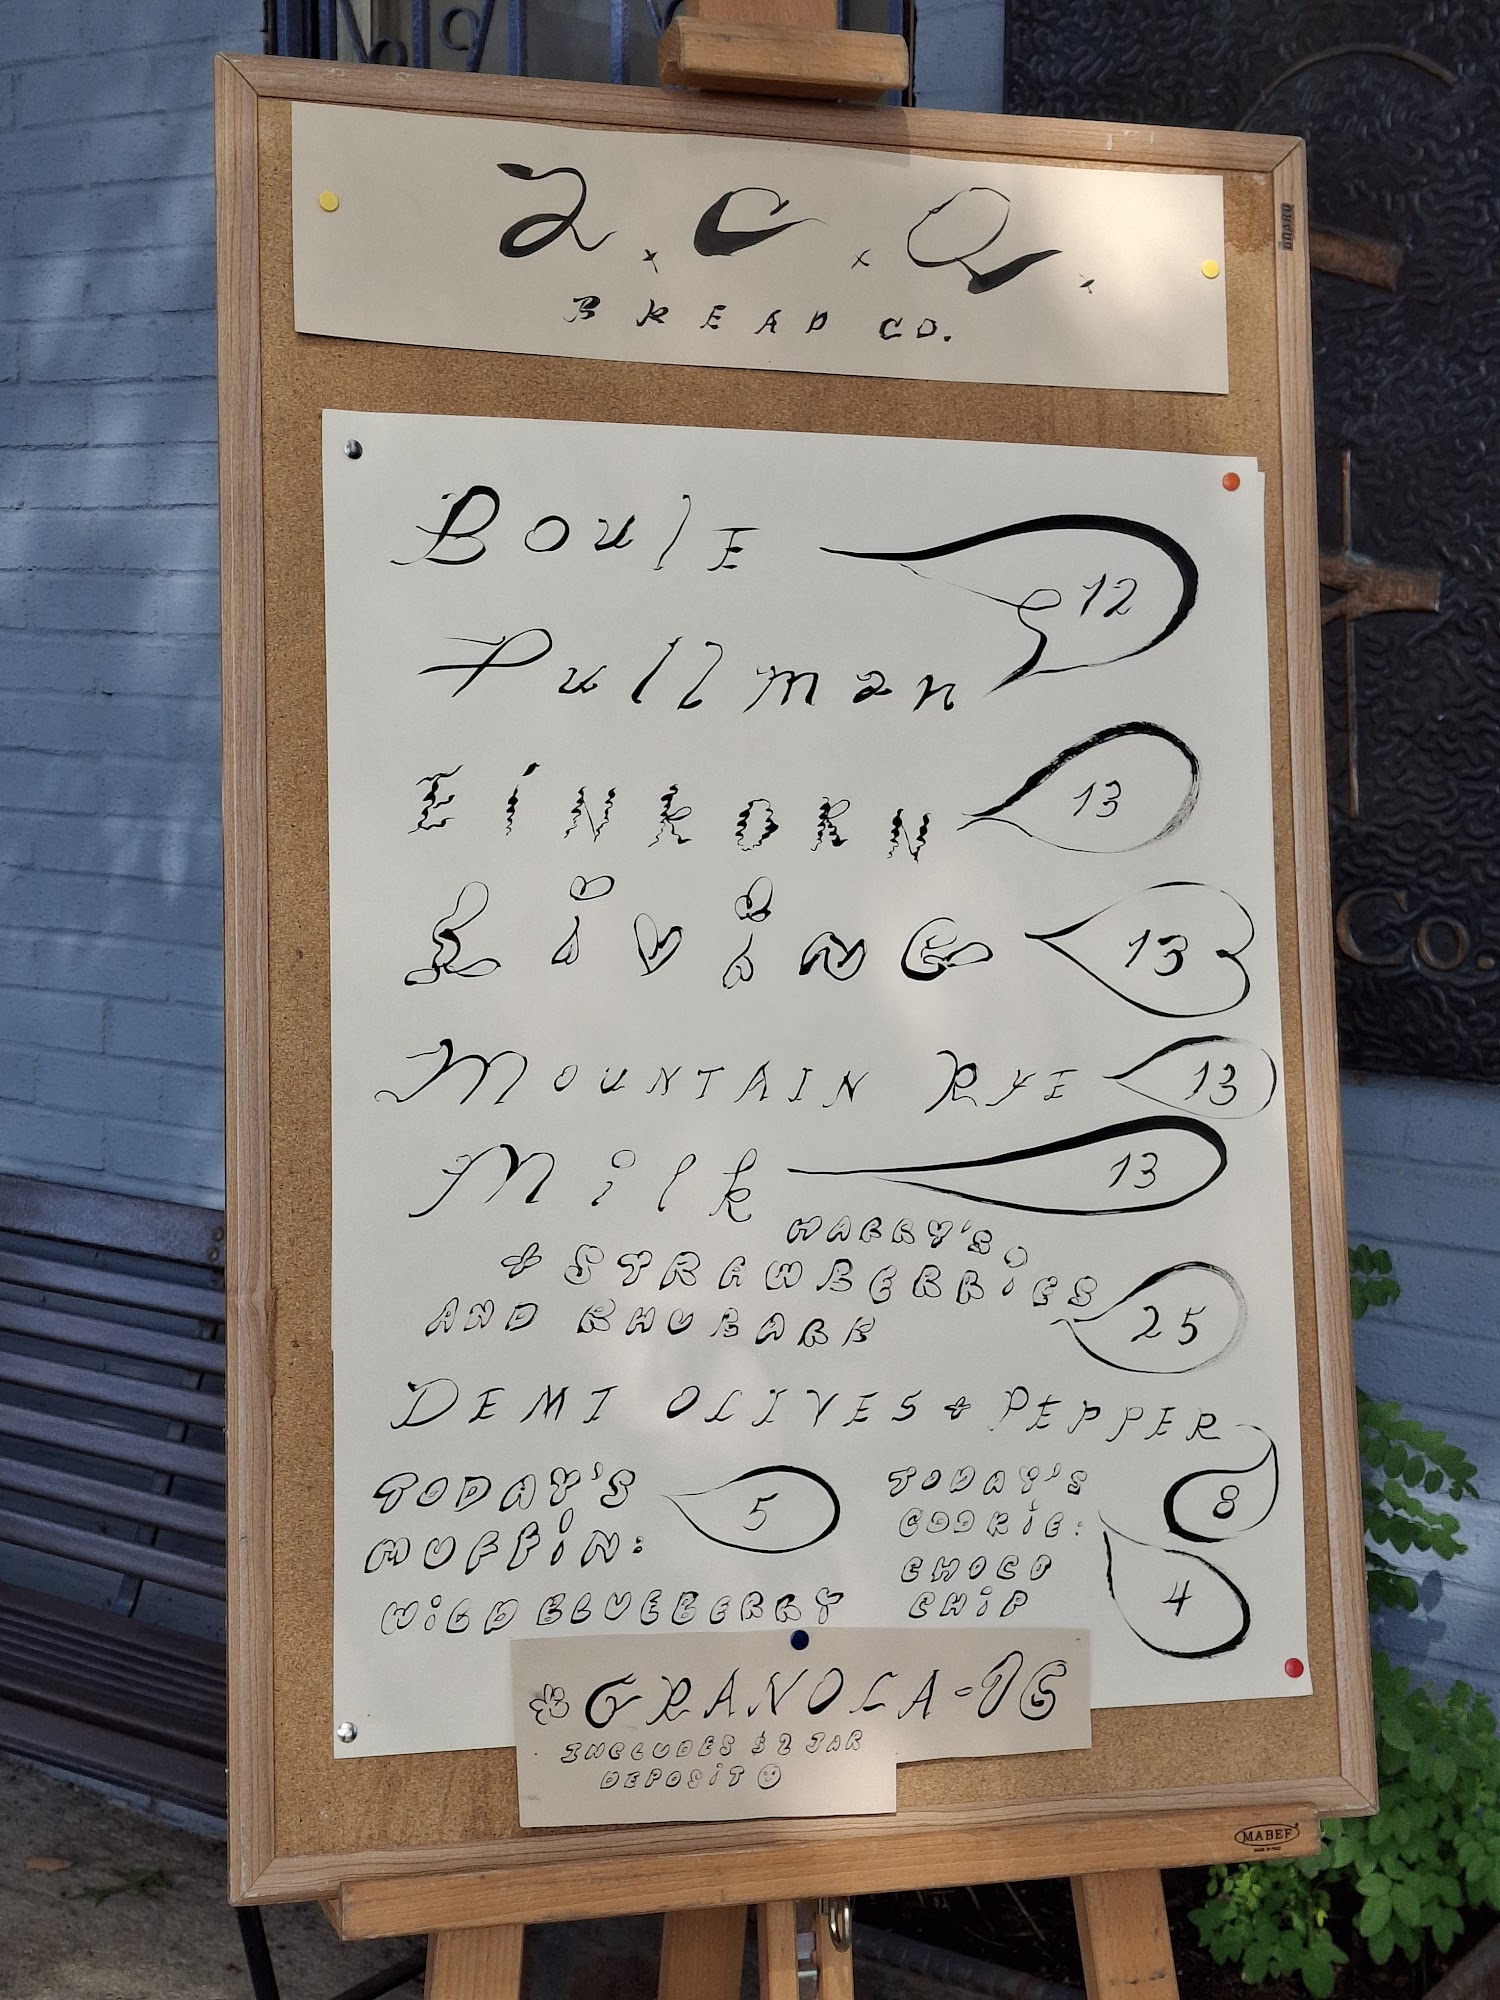 2.C.Q.
BREAD CO.
Boule
12
Pullman
EiNKORN 13
LiViNG 13
MOUNTAIN RYE 13
Milk 13
HARRY'S
+ STRAWBERRiES
AND RHUBARB 25
DEMI OLIVES + PEPPER 8
TODAY'S
MUFFiN: 5
WiLD BLUEBERRY
TODAY'S
COOKiE:
CHOCO
CHiP 4
GRANOLA - 16
INCLUDES $2 JAR
DEPOSiT ☺
BOARD
Co.
MABEF